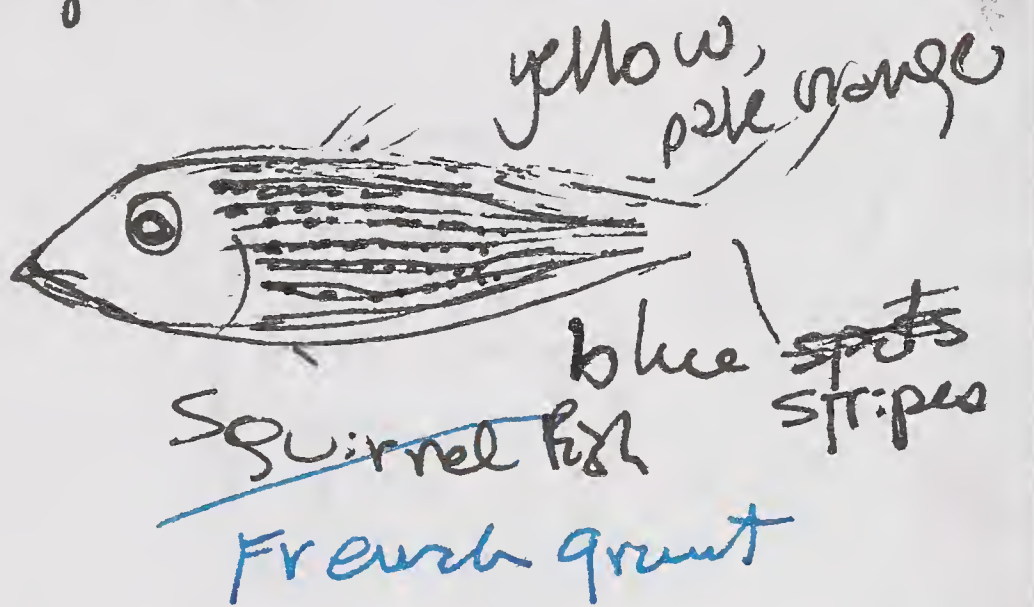 yellow,
pale orange
blue spots
stripes
Squirrel fish
French grunt